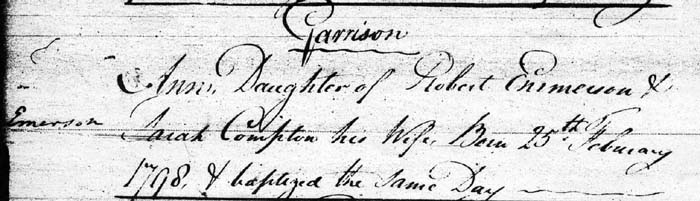 Garrison
Ann, Daughter of Robert Emmerson &
Emerson
Sarah Compton his Wife, Born 25th February
1798, & baptized the same Day